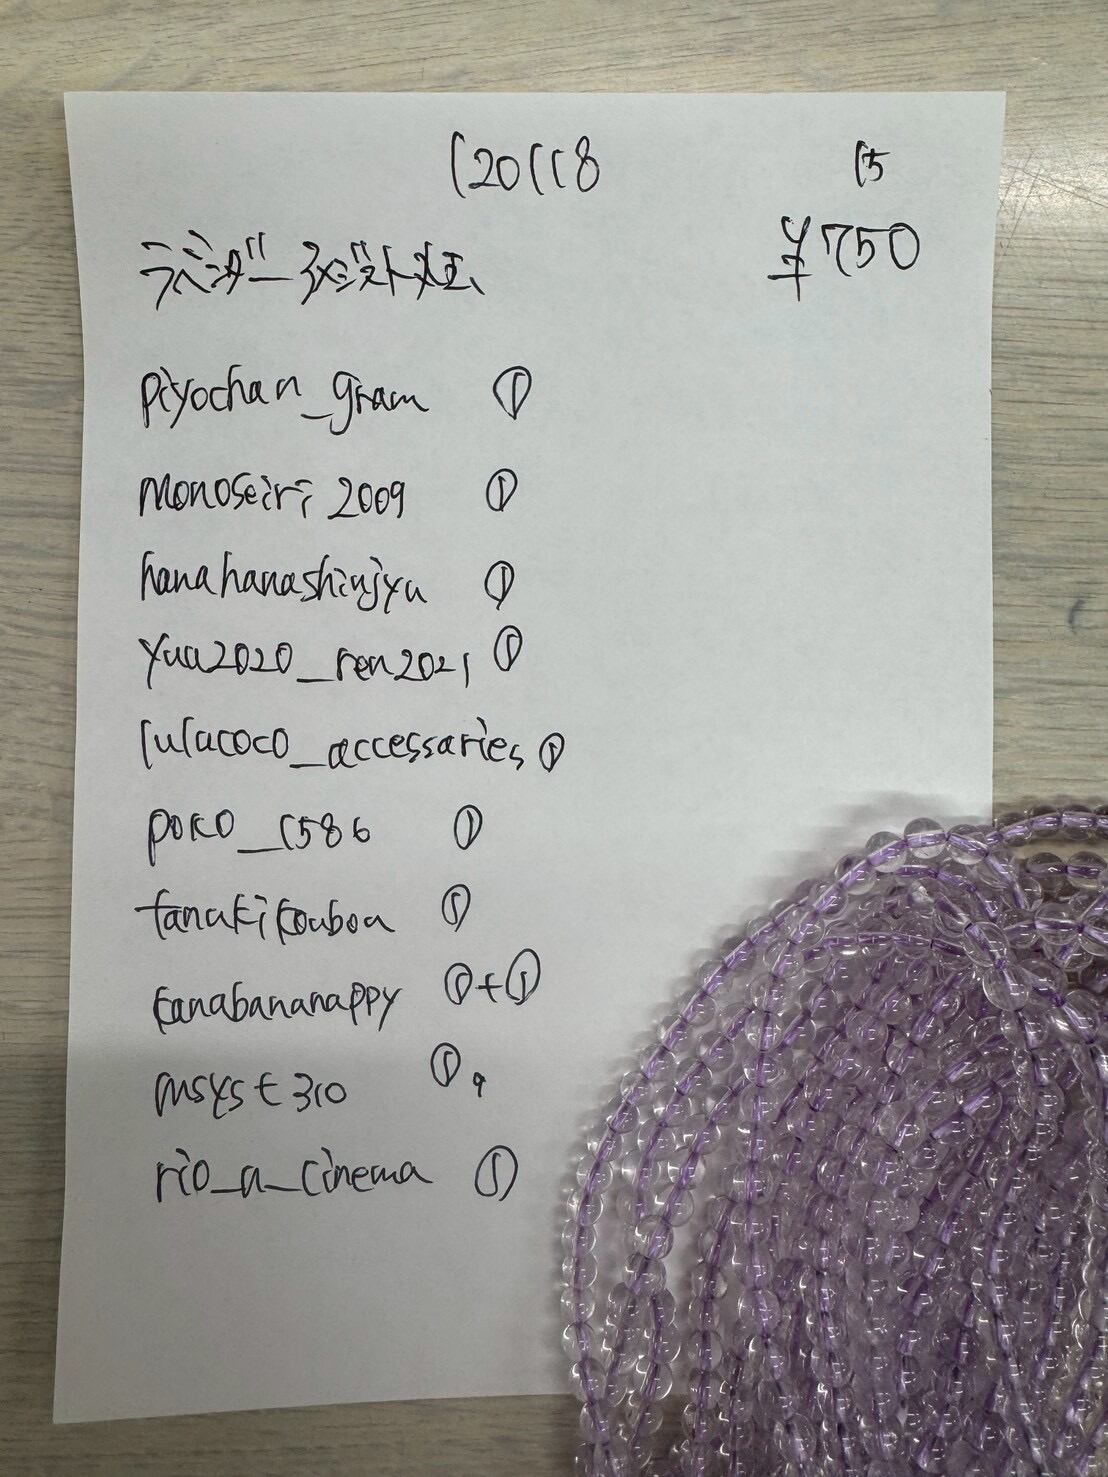 120118
15
ラベンダーアメジスト丸玉
¥750
piyochan_gram ①
monoseiri2009 ①
hanahanashinjyu ①
yuu2020_ren2021 ①
lulucoco_accessaries ①
poko_1586 ①
tanukikoubou ①
kanabananappy ①+①
msyst310 ①,
rio_a_cinema ①